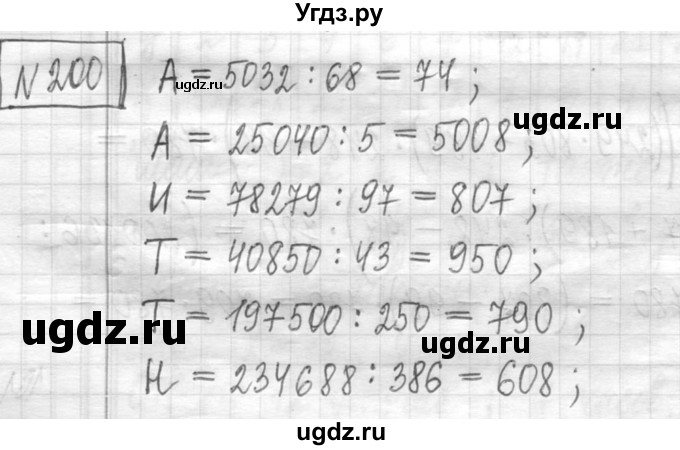 Угдз.ру
N 200 A = 5032 : 68 = 74 ;
ugdz.ru
A = 25040 : 5 = 5008 ;
ugdz.ru
И = 78279 : 97 = 807 ;
Т = 40850 : 43 = 950 ;
ugdz.ru
Т = 197500 : 250 = 790 ;
ugdz.ru
Н = 234688 : 386 = 608 ;
ugdz.ru